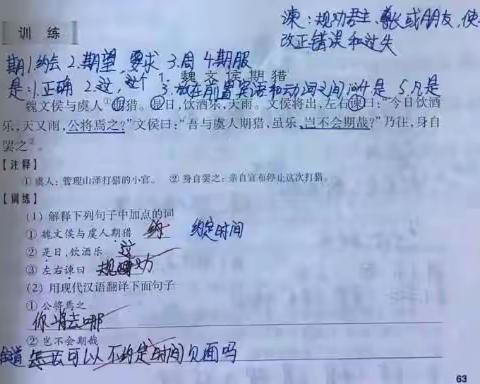 训 练
谏:规劝君主、尊长或朋友,使
改正错误和过失
期1.约会 2.期望,要求 3.周 4.期服
是:1.正确 2.这,这个 3.放在前置宾语和动词之间 4.是 5.凡是
1. 魏文侯期猎
魏文侯与虞人①期猎。是日,饮酒乐,天雨。文侯将出,左右谏曰:“今日饮酒
乐,天又雨,公将焉之?”文侯曰:“吾与虞人期猎,虽乐,岂不会期哉?”乃往,身自
罢之②。
【注释】
①虞人:管理山泽打猎的小官。 ②身自罢之:亲自宣布停止这次打猎。
【训练】
(1) 解释下列句子中加点的词
① 魏文侯与虞人期猎 约 约定时间
② 是日,饮酒乐 这
③ 左右谏曰 规劝
(2) 用现代汉语翻译下面句子
① 公将焉之
你将去哪
② 岂不会期哉
可以不约定时间见面吗
63